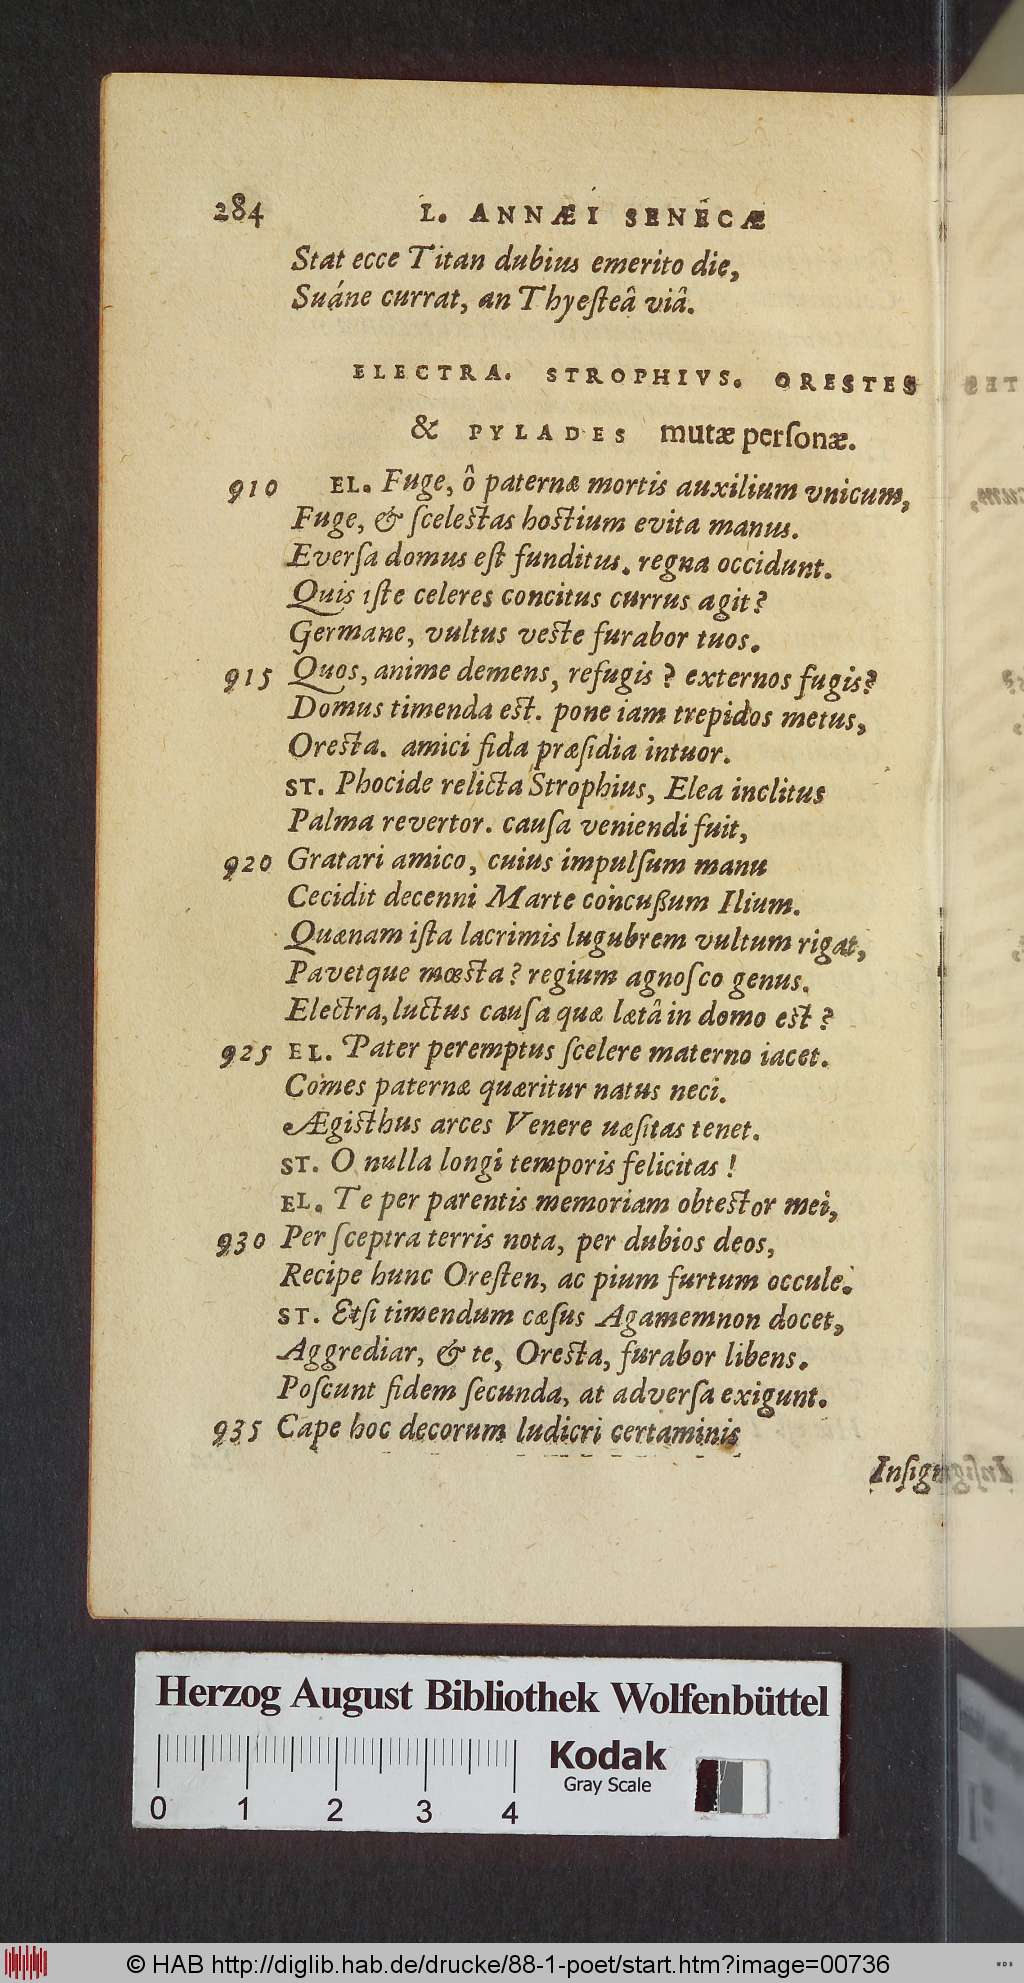 284 L. ANNÆI SENECÆ
Stat ecce Titan dubius emerito die,
Suáne currat, an Thyesteâ viâ.
ELECTRA. STROPHIVS. ORESTES
& PYLADES mutæ perſonæ.
910 EL. Fuge, ô paternæ mortis auxilium vnicum,
Fuge, & ſceleſtas hoſtium evita manus.
Everſa domus eſt funditus. regna occidunt.
Quis iſte celeres concitus currus agit?
Germane, vultus veſte furabor tuos.
915 Quos, anime demens, refugis? externos fugis?
Domus timenda eſt. pone iam trepidos metus,
Oreſta. amici fida præſidia intuor.
ST. Phocide relicta Strophius, Elea inclitus
Palma revertor. cauſa veniendi fuit,
920 Gratari amico, cuius impulſum manu
Cecidit decenni Marte concußum Ilium.
Quænam iſta lacrimis lugubrem vultum rigat,
Pavetque mœſta? regium agnoſco genus.
Electra, luctus cauſa quæ lætâ in domo eſt?
925 EL. Pater peremptus ſcelere materno iacet.
Comes paternæ quæritur natus neci.
Ægiſthus arces Venere uæſitas tenet.
ST. O nulla longi temporis felicitas!
EL. Te per parentis memoriam obteſtor mei,
930 Per ſceptra terris nota, per dubios deos,
Recipe hunc Oreſten, ac pium furtum occule.
ST. Etſi timendum cæſus Agamemnon docet,
Aggrediar, & te, Oreſta, furabor libens.
Poſcunt fidem ſecunda, at adverſa exigunt.
935 Cape hoc decorum ludicri certaminis
Inſign
Herzog August Bibliothek Wolfenbüttel
Kodak
Gray Scale
0 1 2 3 4
© HAB http://diglib.hab.de/drucke/88-1-poet/start.htm?image=00736